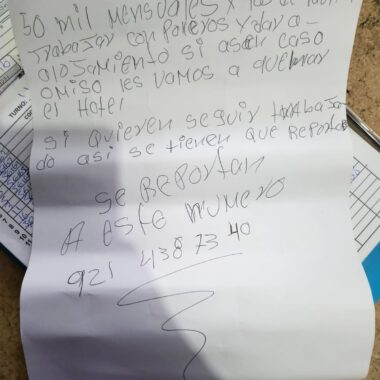 50 mil mensuales y
trabajar con Poreros y dar a-
lojamiento si asen caso
omiso les vamos a quebrar
el Hotel
si quieren seguir trabaja
do asi se tienen que Reportar
se Reportan
A este numero
921 438 73 40
TURNO